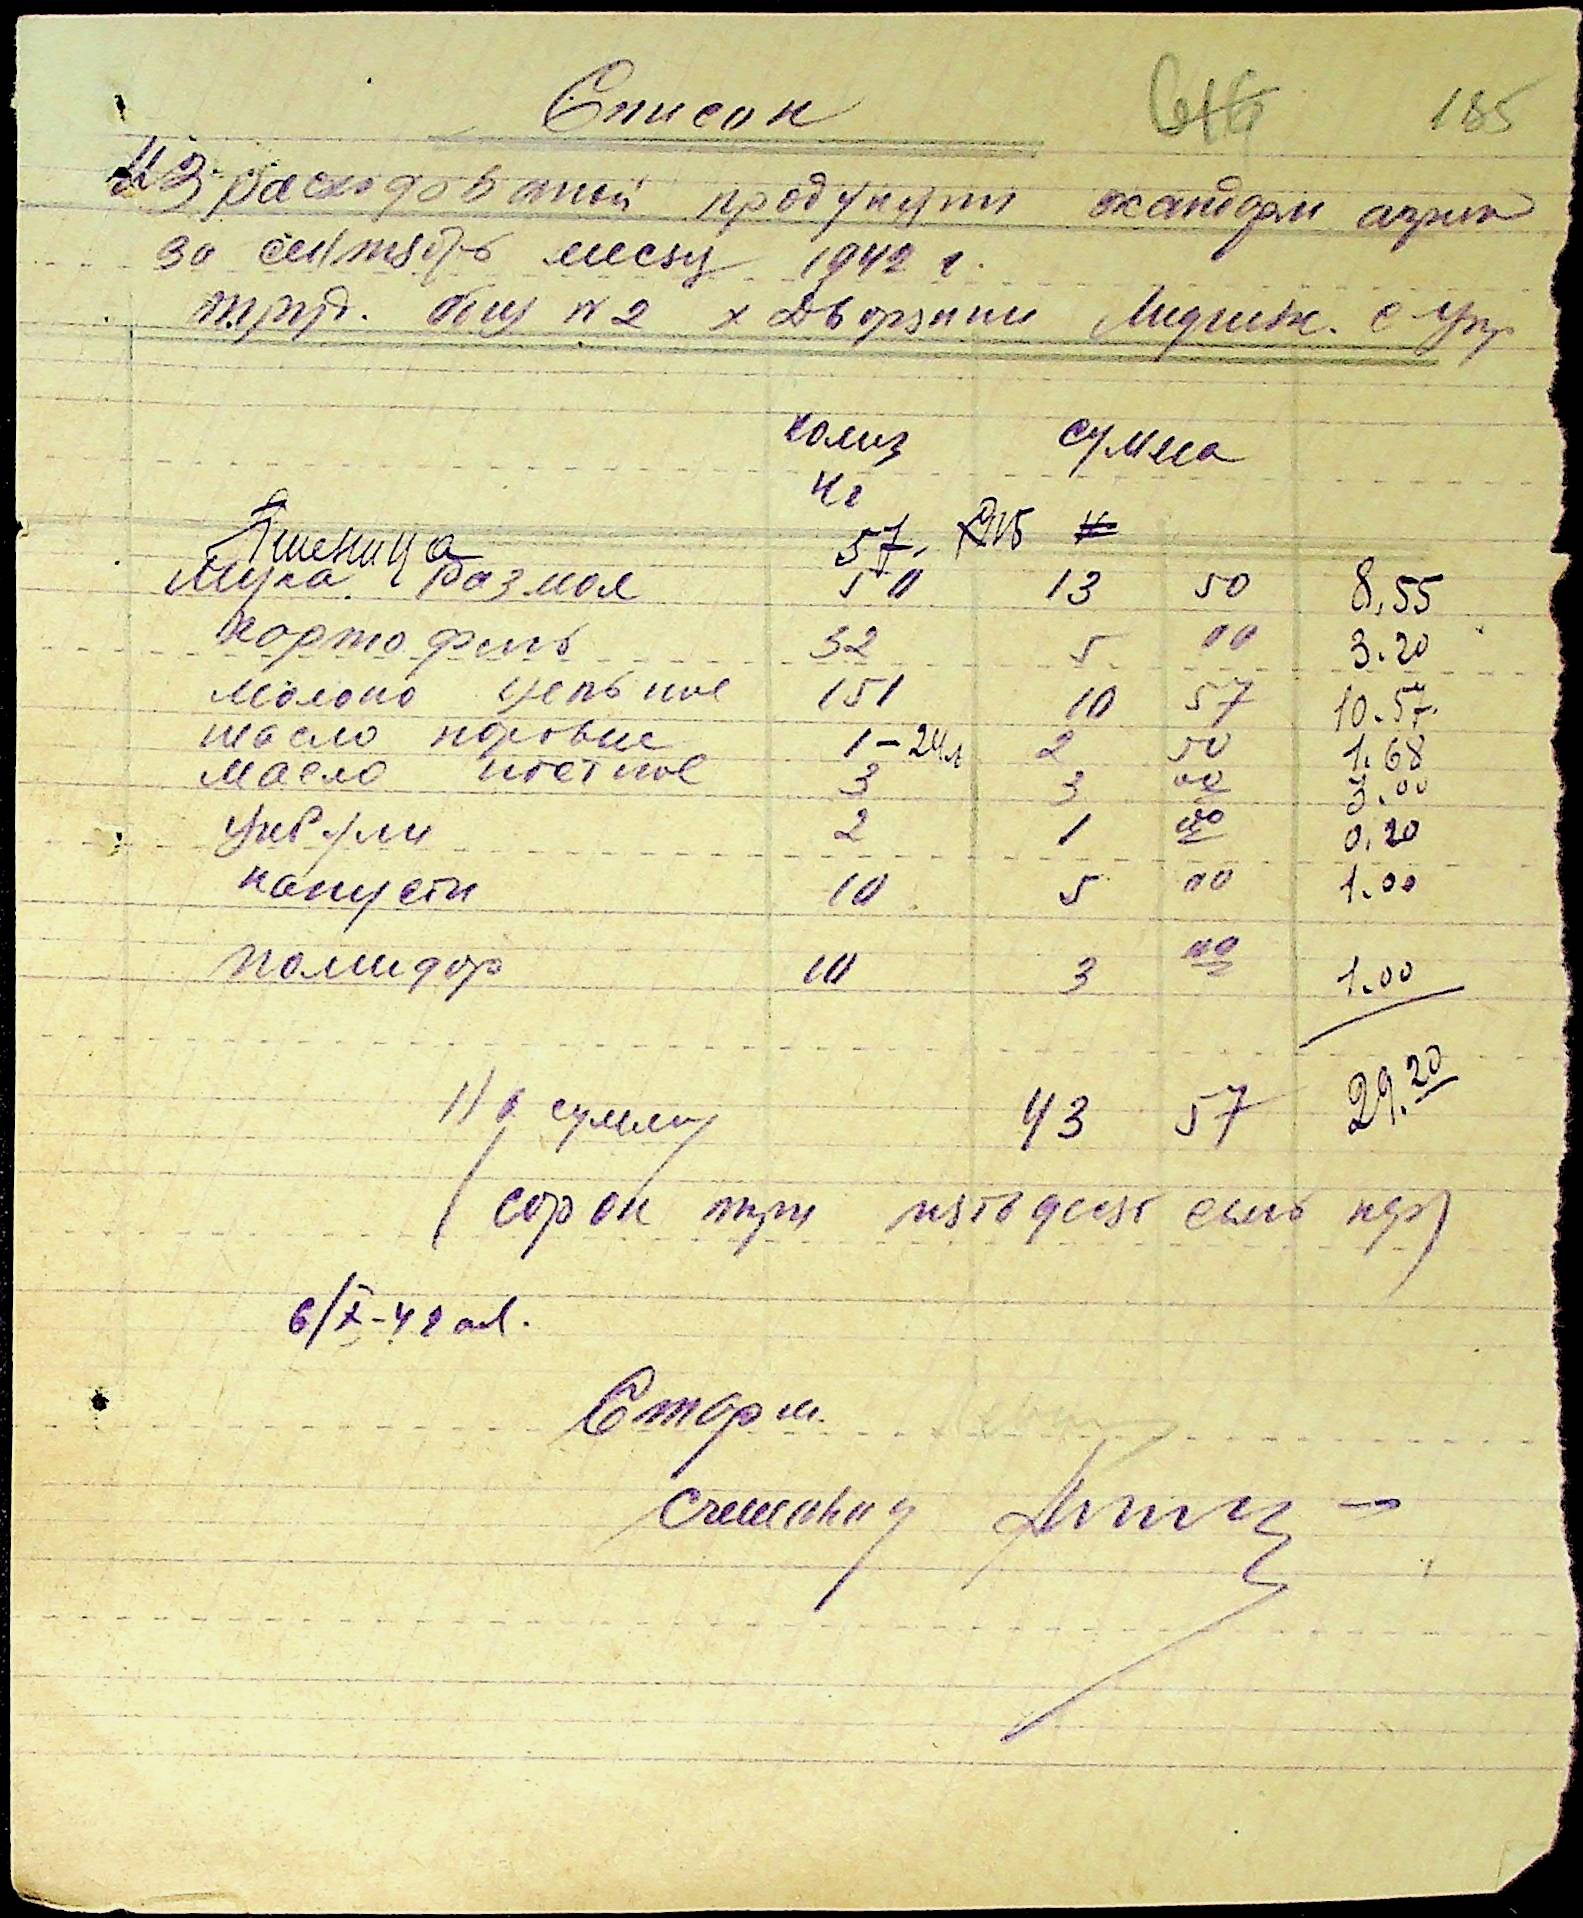 Список 185
Израсходовтий продукции жандарм
за сентябрь месяц 1942 г.
труд. общ №2 х Дворянки
колич сумма
кг
Пшеница 57.
Мука размол 50 13 50 8,55
картофель 32 5 00 3.20
молоко цельное 151 10 57 10.57
масло коровье 1-24л 2 50 1.68
масло постное 3 3 00 3.00
цибули 2 1 00 0.20
капусти 10 5 00 1.00
помидор 10 3 00 1.00
На сумму 43 57 29.20
(сорок три пятьдесят семь крб)
6/X-42
Старш.
счетовод